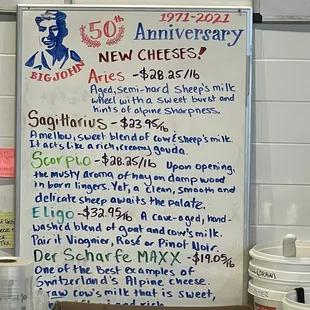 1971-2021
50th Anniversary
BIG JOHN
NEW CHEESES!
Aries - $28.25/lb
Aged, semi-hard sheep's milk
wheel with a sweet burst and
hints of alpine sharpness.
Sagittarius - $23.95/lb
A mellow, sweet blend of cow & sheep's milk.
It acts like a rich, creamy gouda.
Scorpio - $28.25/lb Upon opening,
the musty aroma of hay on damp wood
in barn lingers. Yet, a clean, smooth and
delicate sheep awaits the palate.
Eligo - $32.95/lb A cave-aged, hand-
washed blend of goat and cow's milk.
Pair it Viognier, Rosé or Pinot Noir.
Der Scharfe MAXX - $19.05/lb
One of the best examples of
Switzerland's Alpine cheese.
Raw cow's milk that is sweet,
and rich